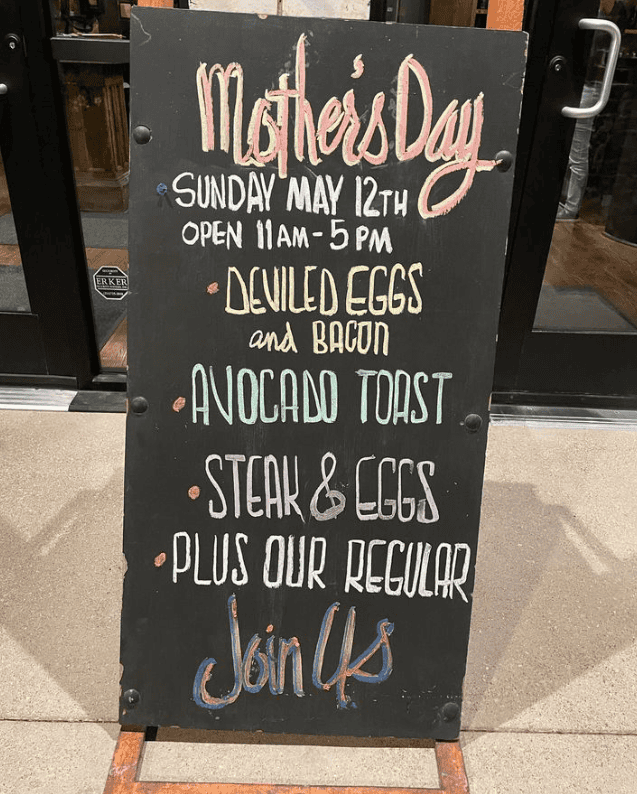 Mother's Day
SUNDAY MAY 12TH
OPEN 11AM-5PM
DEVILED EGGS
and BACON
AVOCADO TOAST
STEAK & EGGS
PLUS OUR REGULAR
Join Us
ERKER